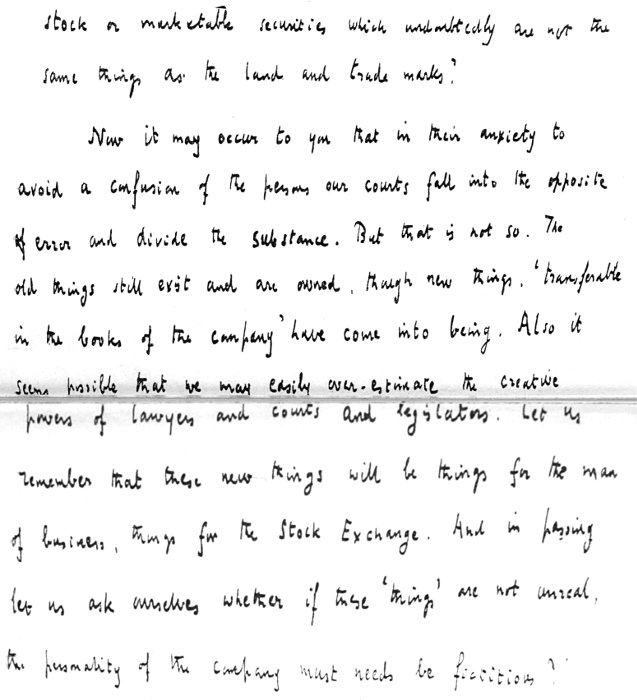 stock or marketable securities which undoubtedly are not the
same things as the land and trade marks?
Now it may occur to you that in their anxiety to
avoid a confusion of the persons our courts fall into the opposite
error and divide the substance. But that is not so. The
old things still exist and are owned, though new things, 'transferable
in the books of the company' have come into being. Also it
seems possible that we may easily over-estimate the creative
powers of lawyers and courts and legislators. Let us
remember that these new things will be things for the man
of business, things for the Stock Exchange. And in passing
let us ask ourselves whether if these 'things' are not unreal,
the personality of the company must needs be fictitious?